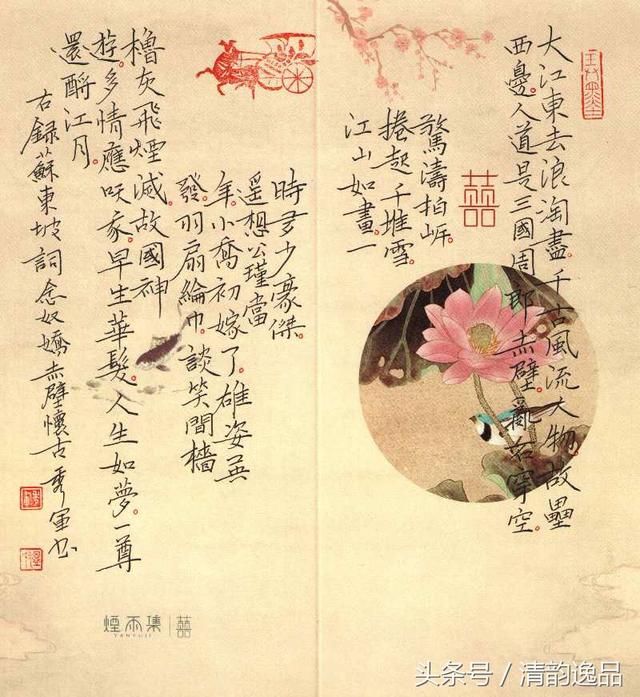 大江東去浪淘盡千古風流人物故壘
西邊。人道是三國周郎赤壁。亂石穿空。
驚濤拍岸。
捲起千堆雪。
江山如畫一
囍
時多少豪傑。
遥想公瑾當
年小喬初嫁了。雄姿英
發。羽扇綸巾。談笑間檣
櫓灰飛煙滅。故國神
遊。多情應咲我。早生華髮。人生如夢。一尊
還酹江月。
右錄蘇東坡詞念奴嬌赤壁懷古秀軍书
煙雨集
YANYUJI
囍
头条号/清韵逸品